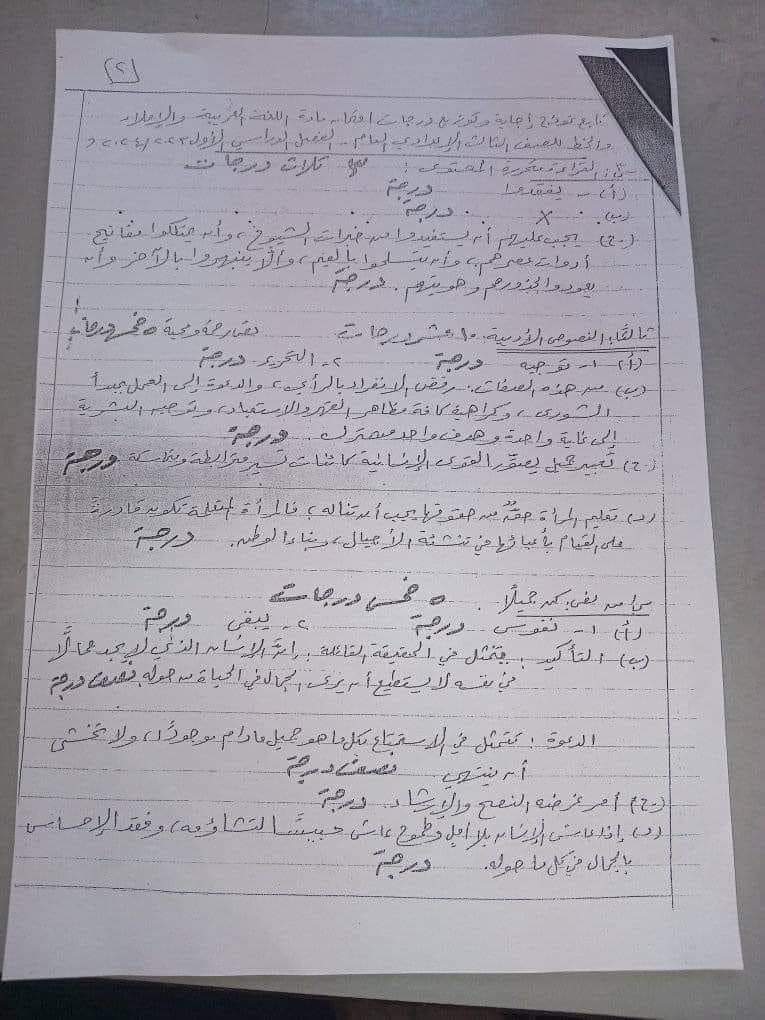 (٢)
تابع نموذج إجابة وتوزيع درجات امتحان مادة اللغة العربية والإملاء
والخط للصف الثالث الإعدادي العام - الفصل الدراسي الأول ٢٠٢٣/٢٠٢٤م
القراءة متحررة المحتوى: ٣ ثلاث درجات
(أ) - يفقدوا درجة
(ب) X درجة
(ج) يجب عليهم أن يستفيدوا من خبرات الشيوخ، وأن يمتلكوا مفاتيح
أدوات عصرهم، وأن يتسلحوا بالعلم، وألا ينبهروا بالآخر وأن
يعودوا لجذورهم وهويتهم. درجة
ثالثًا: النصوص الأدبية ١٠ عشر درجات ٥ خمس درجات
(أ) ١- توجيه درجة ٢- التحرير درجة
(ب) من هذه الصفات: رفض الانفراد بالرأي، والدعوة إلى العمل بمبدأ
الشورى، وكراهية كافة مظاهر القهر والاستعباد، وتوجيه البشرية
إلى غاية واحدة وهدف واحد مشترك. درجة
(ج) تعبير جميل يصوّر القوى الإنسانية كائنات تسير مترابطة ومتماسكة درجة
(د) تعليم المرأة حقٌّ من حقوقها يجب أن تناله، فالمرأة المتعلمة تكون قادرةً
على القيام بأعبائها في تنشئة الأجيال، وبناء الوطن. درجة
س: من نص: كن جميلًا. ٥ خمس درجات
(أ) ١- نفوس درجة ٢- يبقى درجة
(ب) التأكيد: يتمثل في الحقيقة القائلة: إنَّ الإنسان الذي لا يجد جمالًا
في نفسه لا يستطيع أن يرى الجمال في الحياة من حوله. نصف درجة
الدعوة: تتمثل في الاستمتاع بكل ما هو جميل مادام موجودًا، ولا تخشى
أن ينتهي نصف درجة
(ج) أمر غرضه النصح والإرشاد. درجة
(د) إذا عاش الإنسان بلا أمل وطموح عاش حبيسًا لتشاؤمه، وفقد الإحساس
بالجمال في كل ما حوله. درجة